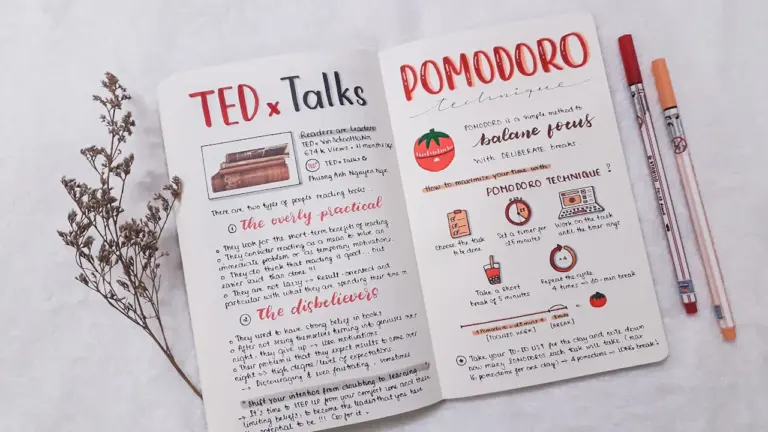 TED x Talks
Readers are leaders
TEDx VanSchoolHaNoi
674K views • 11 months ago
TEDx Talks &
Phuong Anh Nguyen Ngoc
There are two types of people reading books
1 The overly-practical
They look for the short-term benefits of reading
They consider reading as a mean to solve an
immediate problem or as temporary motivations.
They do think that reading is good ... but
easier said than done !!!
They are not lazy → Result-oriented and
particular with what they are spending their time on
2 The disbelievers
They used to have strong belief in books
After not seeing themselves turning into geniuses over
night, they give up → lose motivations
Their problem is that they expect results to come over
night → High degree / level of expectations
→ Discouraging & even frustrating, sometimes
"Shift your intention from doubting to learning
→ It's time to STEP UP from your comfort zone and their
limiting beliefs, to become the leader that you have
potential to be !!! Go for it.
POMODORO
technique
POMODORO is a simple method to
balane focus
with DELIBERATE breaks
How to maximize your time with
POMODORO TECHNIQUE ?
Choose the task
to be done
Set a timer for
25 minutes
Work on the task
until the timer rings
Take a short
break of 5 minutes
x4
Repeat the cycle
4 times → 30-min break
1 Pomodoro = 25 minute + 5 min =
[FOCUSED WORK] [BREAK]
Take your TO-DO LIST for the day and note down
how many POMODOROS each task will take (max
16 pomodoros for one day) → 4 pomodoros → LONG break!